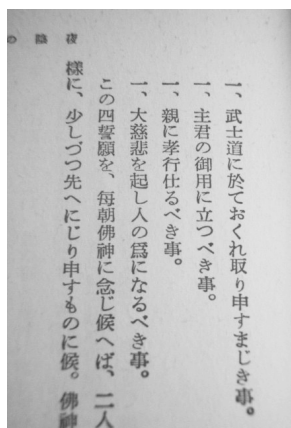 夜陰の
一、武士道に於ておくれ取り申すまじき事。
一、主君の御用に立つべき事。
一、親に孝行仕るべき事。
一、大慈悲を起し人の爲になるべき事。
この四誓願を、每朝佛神に念じ候へば、二人
樣に、少しづつ先へにじり申すものに候。佛神